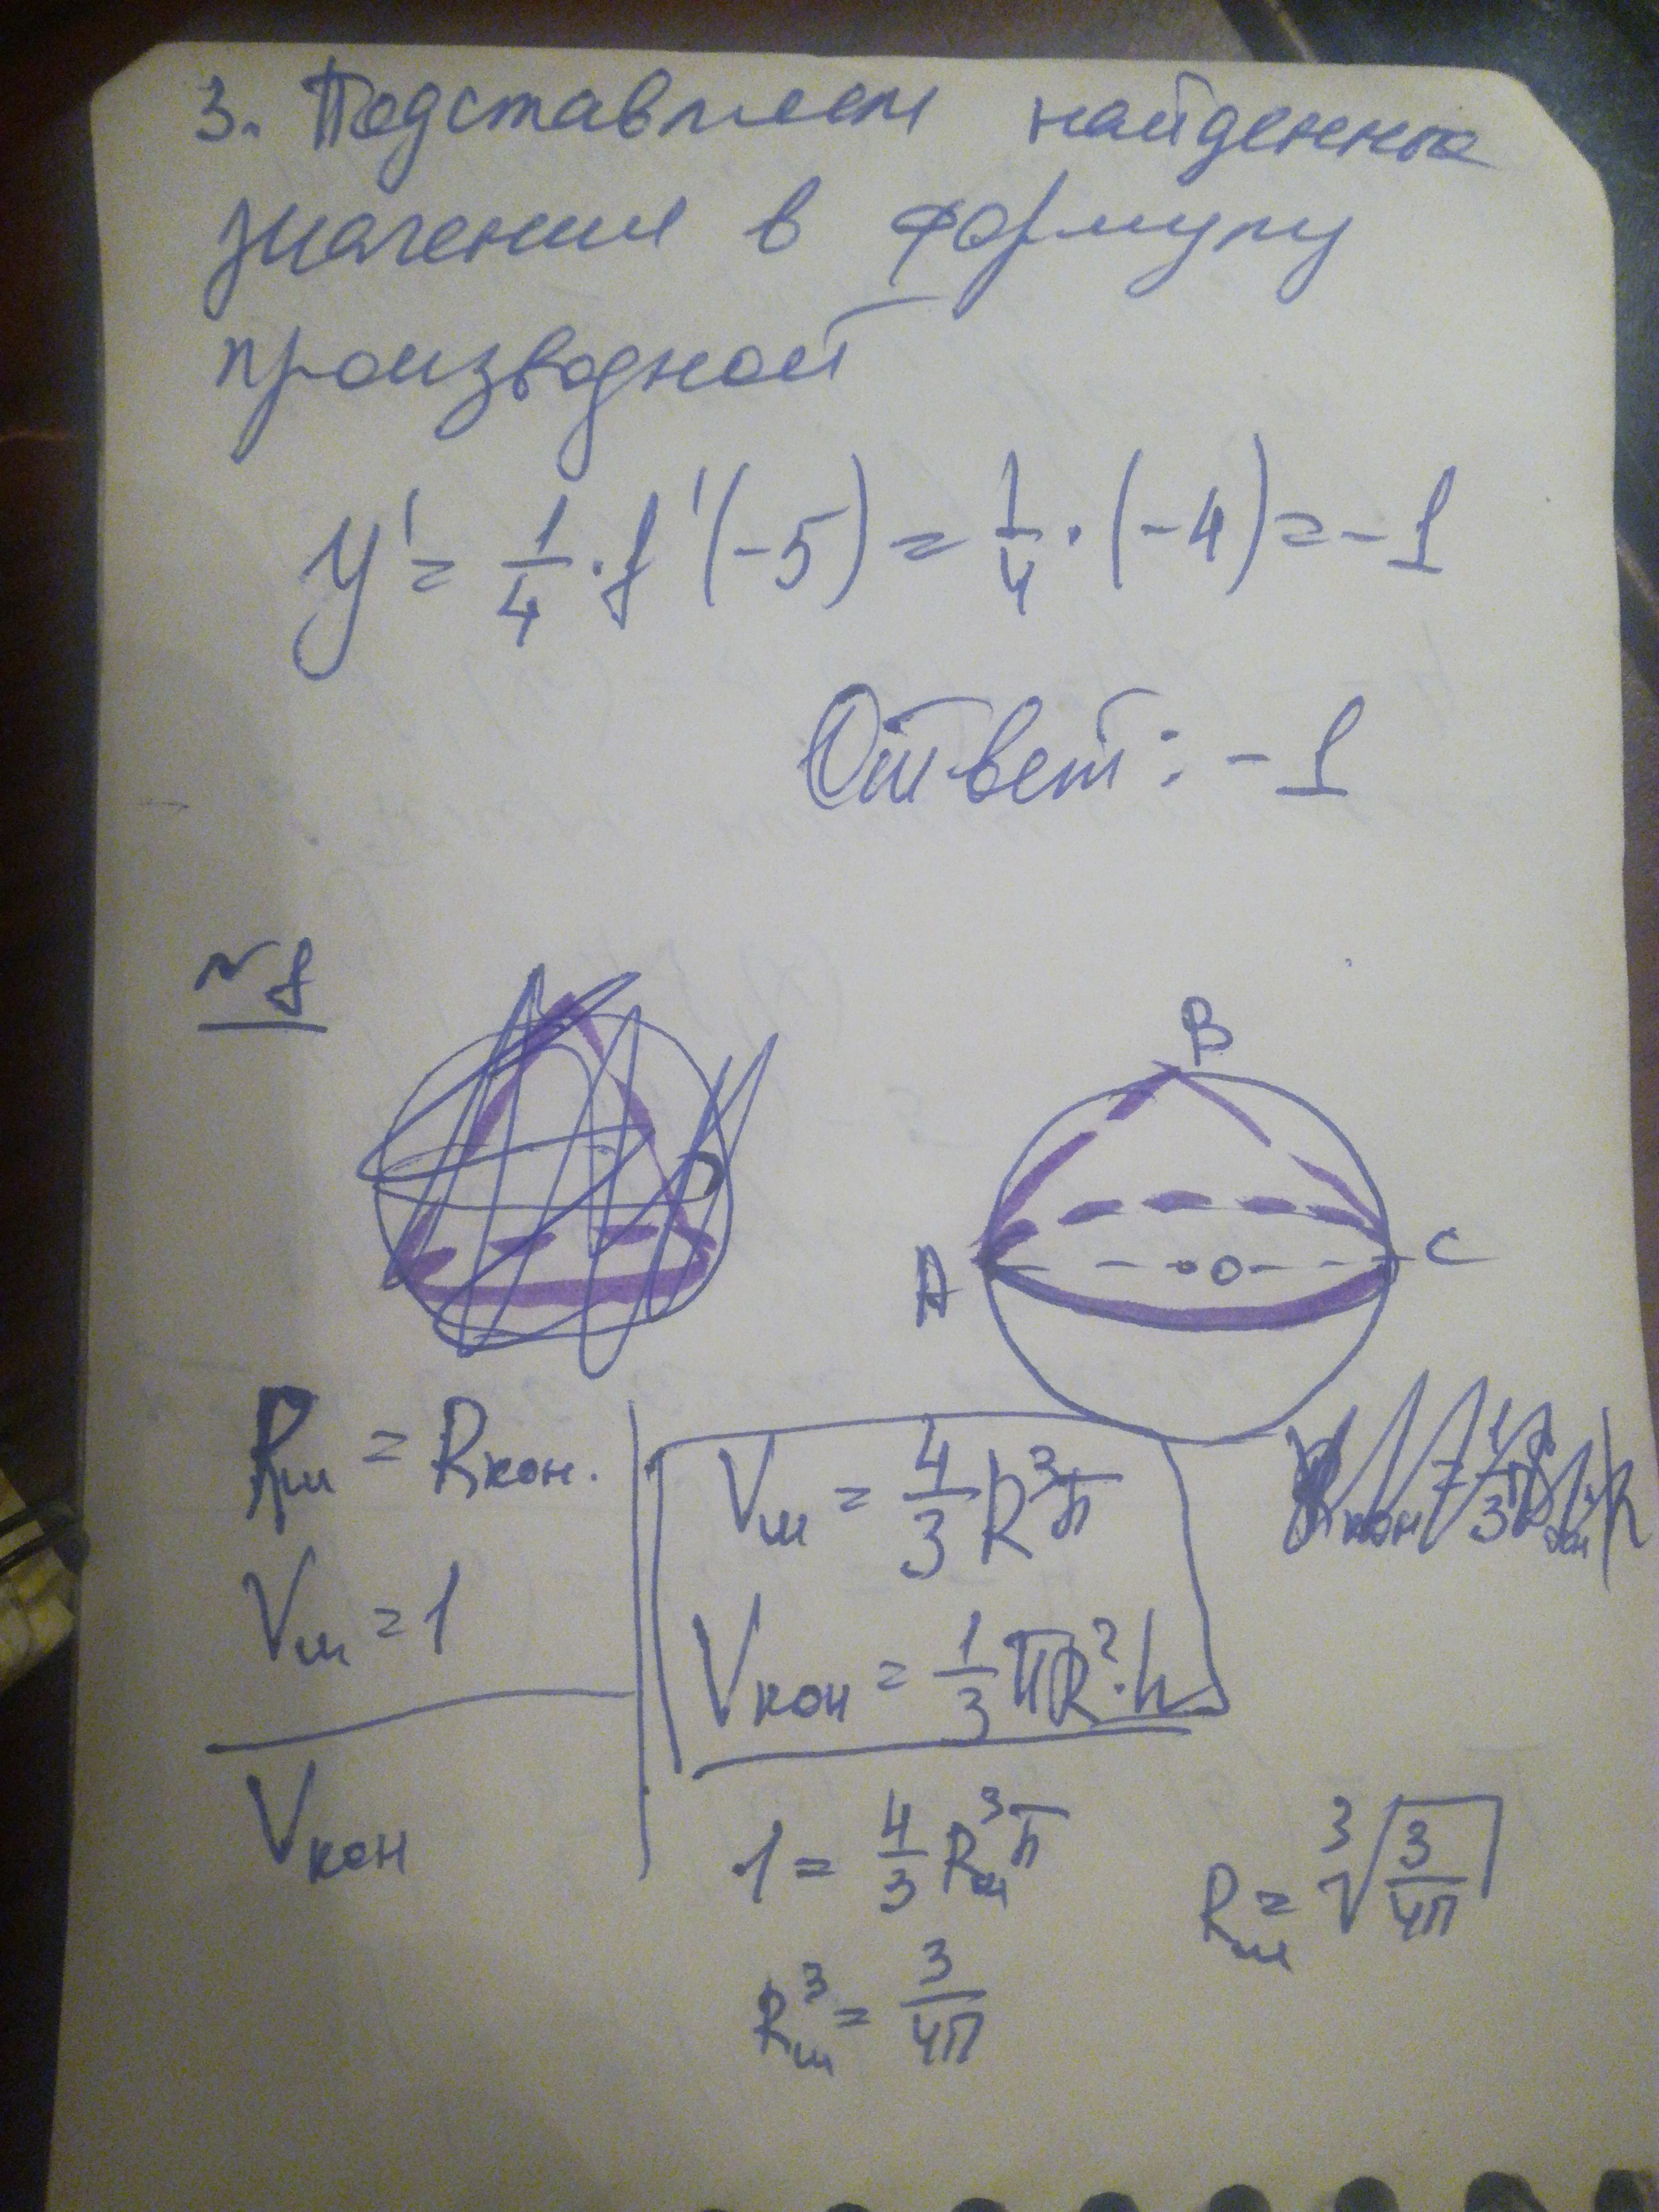 3. Подставляем найденные
значения в формулу
производной
y' = 1/4 · f'(-5) = 1/4 · (-4) = -1
Ответ: -1
B
A
O
C
Rш = Rкон.
Vш = 1
Vкон
Vш = 4/3 R³π
Vкон = 1/3 πR² · h
1 = 4/3 Rш³π
Rш³ = 3/4π
Rш = ³√(3/4π)